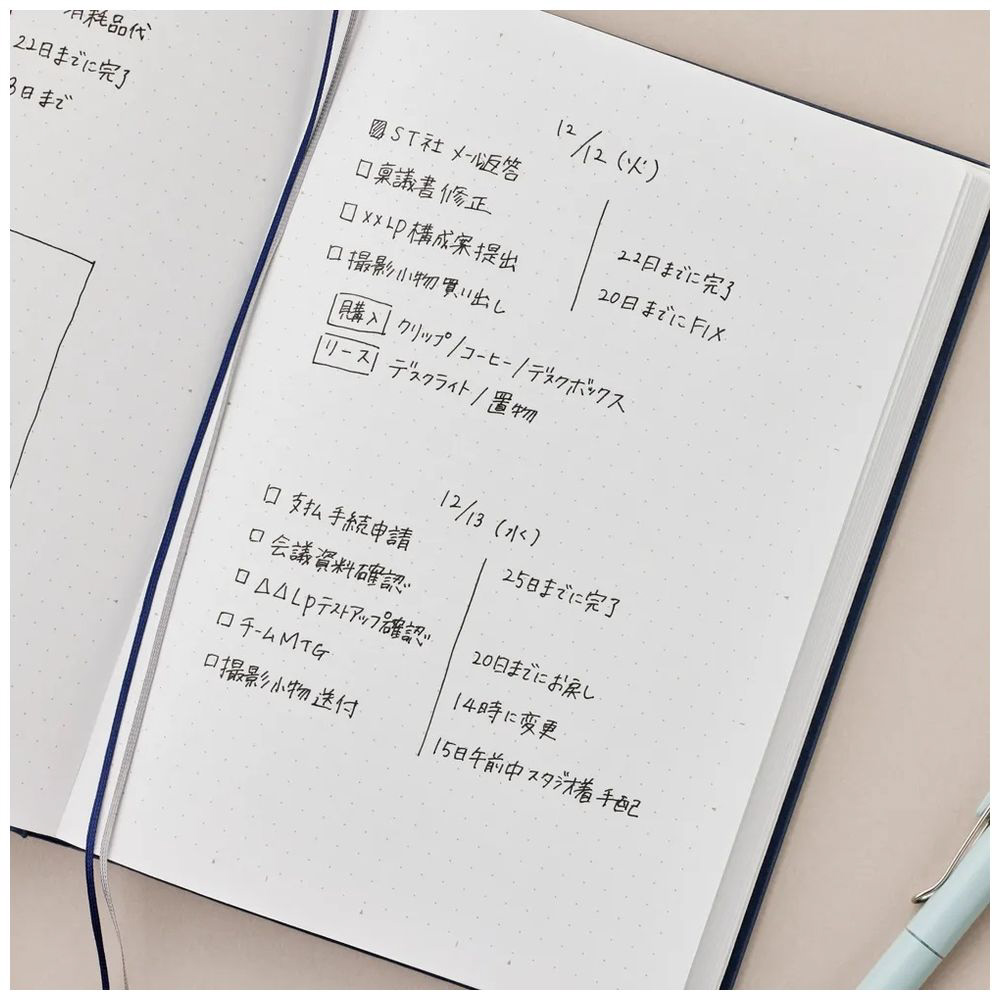 消耗品代
22日までに完了
3日まで
12/12(火)
ST社 メール返答
稟議書修正
22日までに完了
××LP構成案提出
20日までにFIX
撮影小物買い出し
購入 クリップ/コーヒー/デスクボックス
リース デスクライト/置物
12/13(水)
支払手続申請
25日までに完了
会議資料確認
△△LPテストアップ確認
20日までにお戻し
チームMTG
14時に変更
撮影小物送付
15日午前中スタジオ着手配